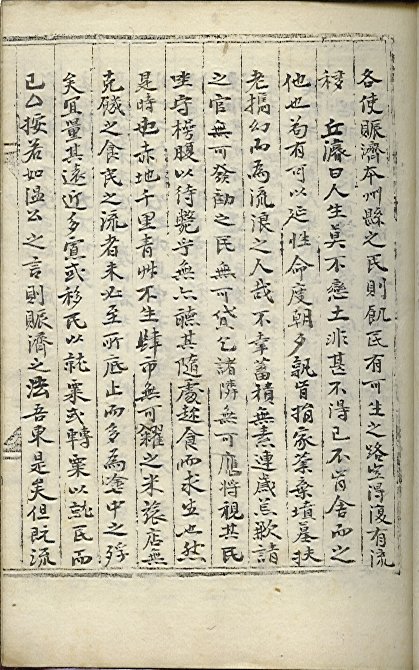 各使賑濟本州縣之民則飢民有可生之路豈得復有流
移 丘濬曰人生莫不戀土非甚不得已不肯舍而之
他也苟有可以延性命度朝夕孰肯捐家業棄墳墓扶
老携幻而為流浪之人哉不幸蓄積無素連歲荒歉請
之官無可發勸之民無可貸乞諸隣無可應將視其民
坐守枵腹以待斃乎無亦聽其隨處趂食而求生也然
是時也赤地千里青艸不生肆市無可糴之米旅店無
充饑之食民之流者未必至所底止而多為途中之殍
矣宜量其遠近多寡或移民以就粟或轉粟以就民而
已△按若如温公之言則賑濟之法吾東是矣但既流